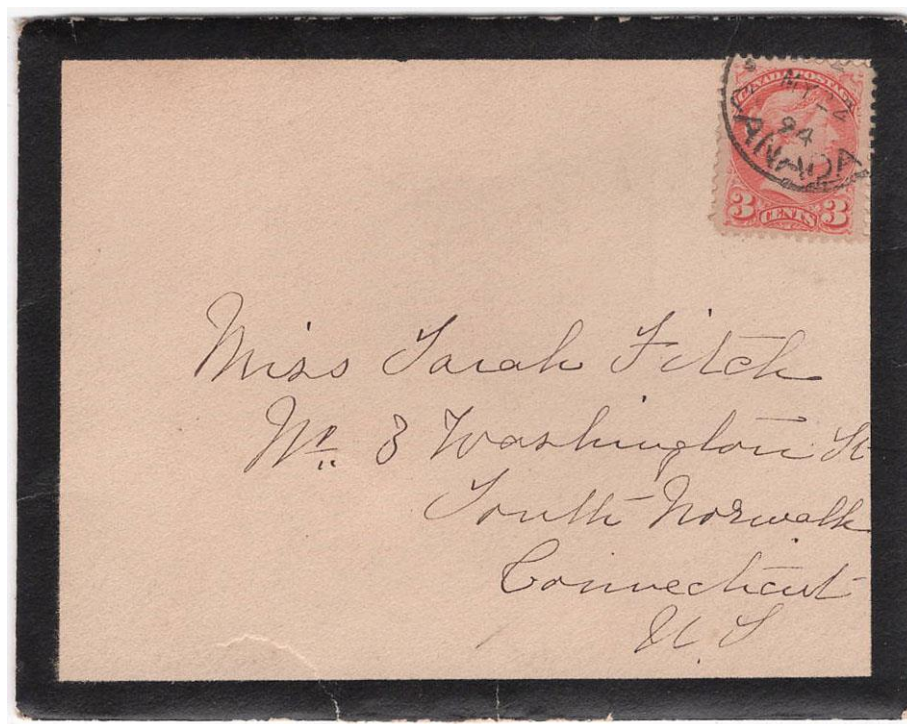 CANADA POSTAGE
MY 24
94
CANADA
3 CENTS 3
Miss Sarah Fitch
No. 8 Washington St
South Norwalk
Connecticut
U.S